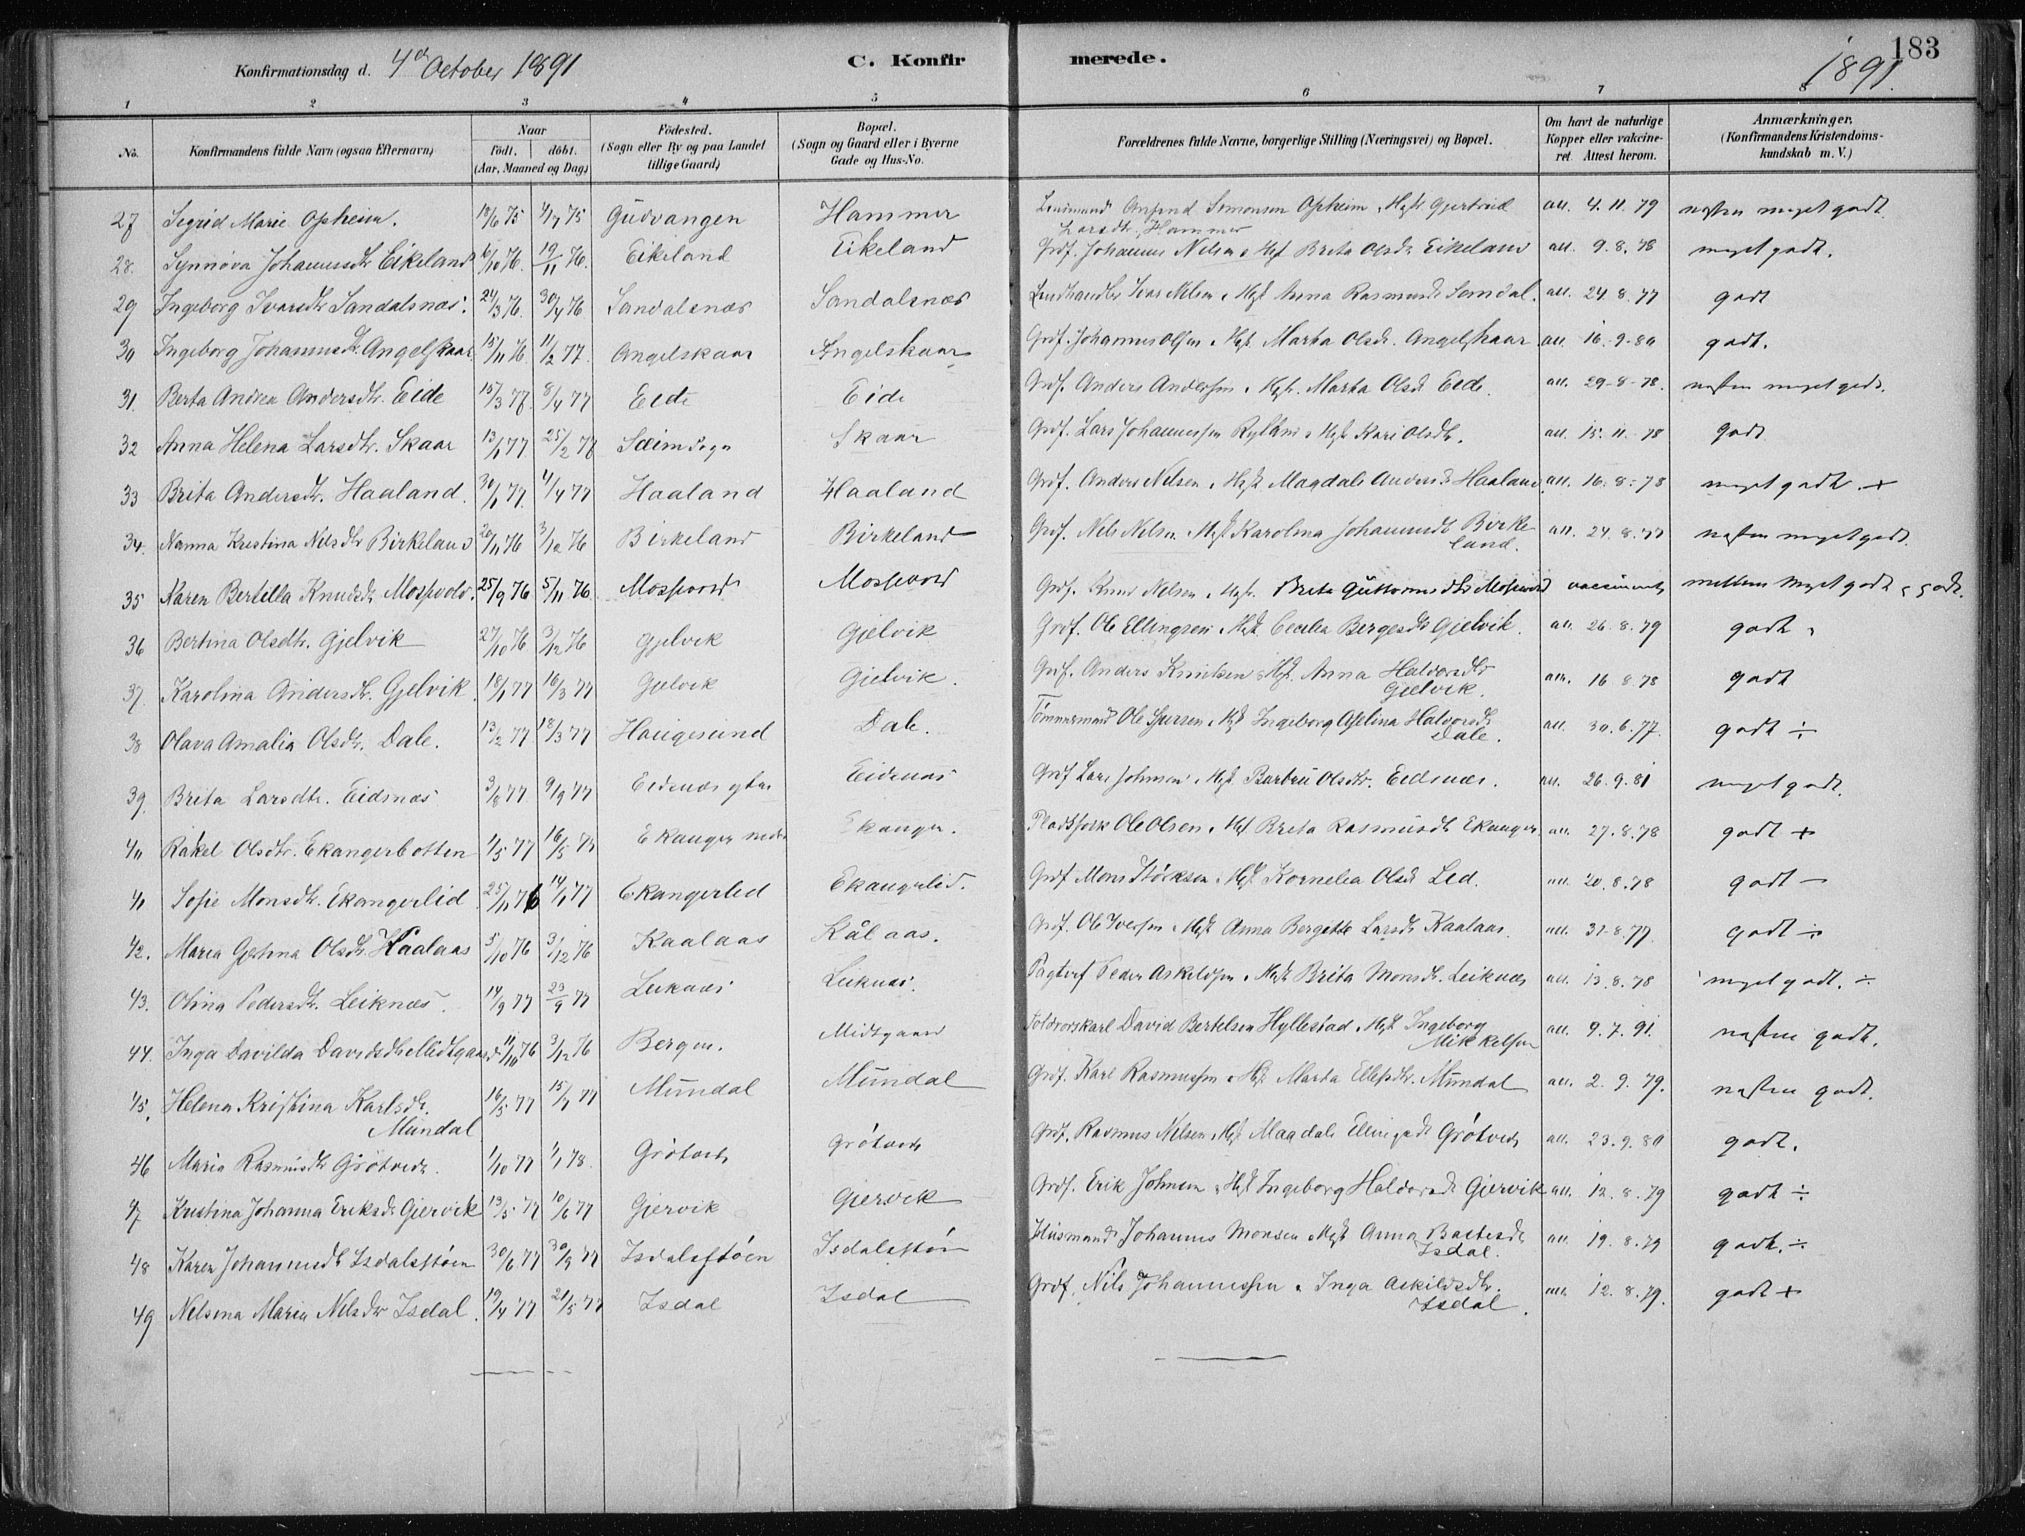 183
Konfirmationsdag d. 4de October 1891
C. Konfirmerede.
1891.
1 2 3 4 5 6 7 8
No.
Konfirmandens fulde Navn (ogsaa Efternavn)
Naar
født. døbt.
(Aar, Maaned og Dag)
Fødested.
(Sogn eller By og paa Landet
tillige Gaard)
Bopæl.
(Sogn og Gaard eller i Byerne
Gade og Hus-No.
Forældrenes fulde Navne, borgerlige Stilling (Næringsvei) og Bopæl.
Om havt de naturlige
Kopper eller vakcine-
ret Attest herom.
Anmærkninger.
(Konfirmandens Kristendoms-
kundskab m. V.)
27 Sigrid Marie Opheim. 18/6 75 4/7 75 Gudvangen Hammer Lensmand Simonsen Opheim Hgst Gjertrud Larsdtr. Hammer att. 4.11.79 næsten meget godt
28. Synnøva Johannesdtr Eikeland 6/10 76. 19/11 76. Eikeland Eikeland Grdf. Johannes Nelsen Hgst Brita Olsdtr Eikeland att. 9.8.78 meget godt.
29 Ingeborg Ivarsdtr Sandalsnæs. 24/3 76. 30/4 76 Sandalsnæs Sandalsnæs Landhandler Ivar Nelsen Hgst Anna Rasmusdtr Sandal. att. 24.8.77 godt
30 Ingeborg Johannesdtr. Angelskaar 15/11 76 11/2 77. Angelskaar Angelskaar Grdf. Johannes Olsen Hgst Marta Olsdtr. Angelskaar att. 16.9.80 godt.
31. Berta Andrea Andersdtr. Eide 15/3 77. 8/4 77 Eide Eide Grdf. Anders Andersen Hgst. Marta Olsdtr Eide. att. 29-8-78. næsten meget godt.
32 Anna Helena Larsdtr. Skaar 13/1 77 25/2 77 Sæim sogn Skaar Grdf. Lars Johannessen Hgst Kari Olsdtr. att. 15.11.78 godt
33 Brita Andersdtr. Haaland. 30/1 77. 4/4 77 Haaland Haaland Grdf. Anders Nelsen Hgst. Magdale Andersdtr Haaland. att. 16.8.78 meget godt. +
34. Nanna Kristina Nilsdtr Birkeland 20/11 76 3/12 76 Birkeland Birkeland Grdf. Nils Nelsen Hgst Karolina Johannesdtr Birkeland. att. 24.8.77 næsten meget godt.
35 Karen Bertilla Knudsdtr Mossevold. 25/9 76 5/11 76. Mossevold Mossevold Grdf. Knud Nelsen Hgst. Brita Guttormsdtr Mossevold vaccineret mellem meget godt og godt.
36 Bertina Olsdtr. Gjelvik 27/10 76 3/12 76 Gjelvik Gjelvik Grdf. Ole Ellingsen Hgst. Cecilia Bergesdtr Gjelvik. att. 26.8.79 godt.
37. Karolina Andersdtr. Gjelvik. 18/1 77 16/3 77 Gjelvik Gjelvik. Grdf. Anders Knudsen Hgst. Anna Haldorsdtr Gjelvik. att. 16.8.78 godt
38 Olava Amalia Olsdtr. Dale. 13/2 77 18/3 77 Haugesund Dale. Tømmermand Ole Hgst Ingeborg Halvorsdtr Dale. att. 30.6.77. godt ÷
39. Brita Larsdtr. Eidsnæs 3/8 77 9/9 77 Eidsnæs ytre Eidsnæs Grdf Lars Johnsen Hgst. Barbru Olsdtr. Eidsnæs. att. 26.9.81 meget godt.
40 Rakel Olsdtr. Ekangerbotten 4/5 77 16/5 77 Ekanger nedre Ekanger. Ole Olsen Hgst Brita Rasmusdtr Ekanger att. 27.8.78 godt +
41 Sofie Monsdtr. Ekangerlid 25/11 76 14/1 77 Ekangerlid Ekangerlid. Grdf Mons Hgst Kornelia Olsdtr Lid. att. 20.8.78 godt -
42. Maria Gjertina Olsdtr. Kaalaas 5/10 76 3/12 76 Kaalaas Kålaas. Grdf. Ole Iversen Hgst Anna Bergitte Larsdtr Kaalaas. att. 31.8.77. godt ÷
43. Olina Pedersdtr. Leiknæs. 14/9 77 23/9 77 Leiknæs Leiknæs. Peder Askeldsen Hgst Brita Monsdtr. Leiknæs att. 13.8.78 meget godt. ÷
44. Inga Davilda Davidsdtr Midtgaard 11/10 76 3/12 76 Bergen. Midtgaard David Bertelsen Hyllestad Hgst Ingeborg Mikkelsen att. 9.7.91. næsten godt.
45. Helena Kristina Karlsdtr. Mundal 16/5 77 15/7 77 Mundal Mundal Grdf. Karl Rasmussen Hgst Marta Mundal att. 2.9.79. næsten godt.
46 Maria Rasmusdtr Grøtvedt. 1/10 77 1/1 78. Grøtvedt Grøtvedt Grdf. Rasmus Nelsen Hgst Magdale Grøtvedt att. 23.9.80 godt.
47 Kristina Johanna Eriksdtr Gjervik 13/5 77 10/6 77 Gjervik Gjervik Grdf. Erik Johnsen Hgst Ingeborg Haldorsdtr Gjervik att. 12.8.79 godt ÷
48 Karen Johannesdtr Isdalstøen 30/6 77 30/9 77 Isdalstøen Isdalstøen Husmand Johannes Monsen Hgst Anna Isdal. att. 19.8.79 godt. ÷
49 Nelsina Maria Nelsdtr Isdal. 19/4 77 21/5 77 Isdal Isdal Grdf. Nils Johannessen Inga Askildsdtr. Isdal. att. 12.8.79. godt +